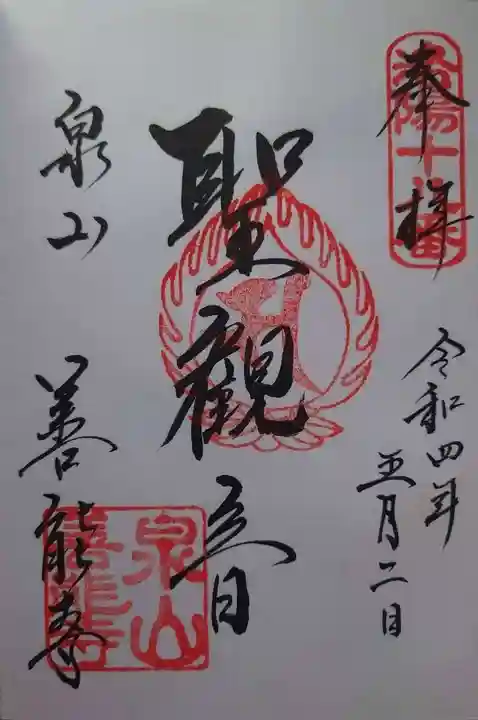 奉拝
洛陽十八番
令和四年
五月二日
聖観音
泉山
善能寺
泉山
善能寺